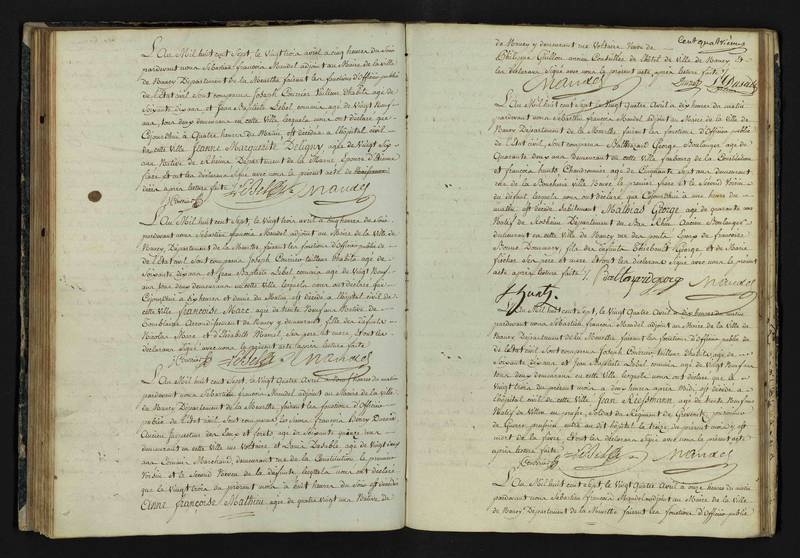 L'An Mil huit cent Sept, le Vingt trois avril a cinq heures du Soir
pardevant nous Sébastien françois Mandel adjoint au Maire de la Ville
de Nancy Département de la Meurthe faisant les fonctions d'Officier public
de l'Etat civil sont comparus Joseph Couvrier tailleur D'habits age de
Soixante dix ans et Jean Baptiste Lebel commis age de Vingt Neuf
ans, tous deux demeurans en cette Ville lesquels nous ont déclaré que
Cejourd'hui à quatre heures du Matin, est décédée à l'hôpital civil
de cette Ville Jeanne Marguerite Deligny, agée de Vingt Six
ans Native de Rheims Département de la Marne Epouse d'Etienne
et ont les déclarans Signé avec nous le présent acte
après lecture faite
Lebel Mandel
J. Couvrier
L'An Mil huit cent Sept, le Vingt trois avril a cinq heures du Soir
pardevant nous Sébastien françois Mandel adjoint au Maire de la Ville de
Nancy, Département de la Meurthe faisant les fonctions d'Officier public
de l'Etat civil sont comparus Joseph Couvrier tailleur D'habits age de
Soixante dix ans et Jean Baptiste Lebel commis age de Vingt Neuf
ans tous deux demeurans en cette Ville lesquels nous ont déclaré que
Cejourd'hui à dix heures et demie du Matin est décédée à l'hôpital civil de
cette Ville françoise Marc agée de trente Neuf ans Native de
Arrondissement de Nancy y demeurant fille des défunts
Nicolas Marc et d'Elisabeth ses père et mère et ont les
déclarans Signé avec nous le présent acte après lecture faite
J. Couvrier Lebel Mandel
L'An Mil huit cent Sept, le Vingt Quatre Avril heures du matin
pardevant nous Sébastien françois Mandel adjoint au Maire de la Ville
de Nancy Département de la Meurthe faisant les fonctions d'Officier
public de l'Etat civil, sont comparus les Sieurs françois
Ancien Inspecteur des Eaux et forets age de Soixante quinze ans
demeurant en cette Ville rue Voltaire et Louis age de Vingt
ans Commis Marchand, demeurant rue de la Constitution le premier
Voisin et le Second Neveu de la défunte lesquels nous ont déclaré
que le Vingt trois du présent mois à huit heures du Soir est décédée
Anne françoise Mathieu agée de quatre Vingt ans Native de
Cent quatrième
de Nancy y demeurant rue Voltaire Veuve de
Philippe Guillon ancien Conseiller de l'Hôtel de Ville de Nancy Et
les déclarans Signé avec nous le présent acte après lecture faite
Mandel
L'An Mil huit cent Sept, le Vingt Quatre Avril à dix heures du matin
pardevant nous Sébastien françois Mandel, adjoint au Maire de la Ville de
Nancy Département de la Meurthe, faisant les fonctions d'Officier public
de l'Etat civil, sont comparus Balthazard George Boulanger age de
Quarante deux ans demeurant en cette Ville faubourg de la Constitution
et françois age de Cinquante Sept ans demeurant
rue de la Boucherie Ville Neuve le premier frère et le Second Voisin
du défunt lesquels nous ont déclaré que Cejourd'hui à une heure du
matin est décédé Mathias George age de quarante ans
Natif de Département du Bas Rhin Ancien Boulanger
demeurant en cette Ville de Nancy rue des ponts Epoux de françoise
fils des défunts Thiebault George et de Marie
ses père et mère et ont les déclarans Signé avec nous le présent
acte après lecture faite Mandel
L'An Mil huit cent Sept, le Vingt Quatre Avril à dix heures du matin
pardevant nous Sébastien françois Mandel adjoint au Maire de la Ville de
Nancy Département de la Meurthe faisant les fonctions d'Officier public
de l'Etat civil sont comparus Joseph Couvrier tailleur D'habits age de
Soixante Dix ans et Jean Baptiste Lebel commis age de Vingt Neuf ans
tous deux demeurans en cette Ville lesquels nous ont déclaré que le
Vingt trois du présent mois à deux heures après Midi, est décédé à
l'hôpital civil de cette Ville Jean Riessmann age de trente Neuf ans
Natif de en prusse, Soldat au Régiment de prisonnier
de Guerre prussien entré au dit hôpital le treize du présent mois, y est
mort de la fièvre et ont les déclarans Signé avec nous le présent acte
après lecture faite
J. Couvrier Lebel Mandel
L'An Mil huit cent Sept, le Vingt Quatre Avril à onze heures du matin
pardevant nous Sébastien françois Mandel adjoint au Maire de la Ville
de Nancy Département de la Meurthe faisant les fonctions d'Officier public